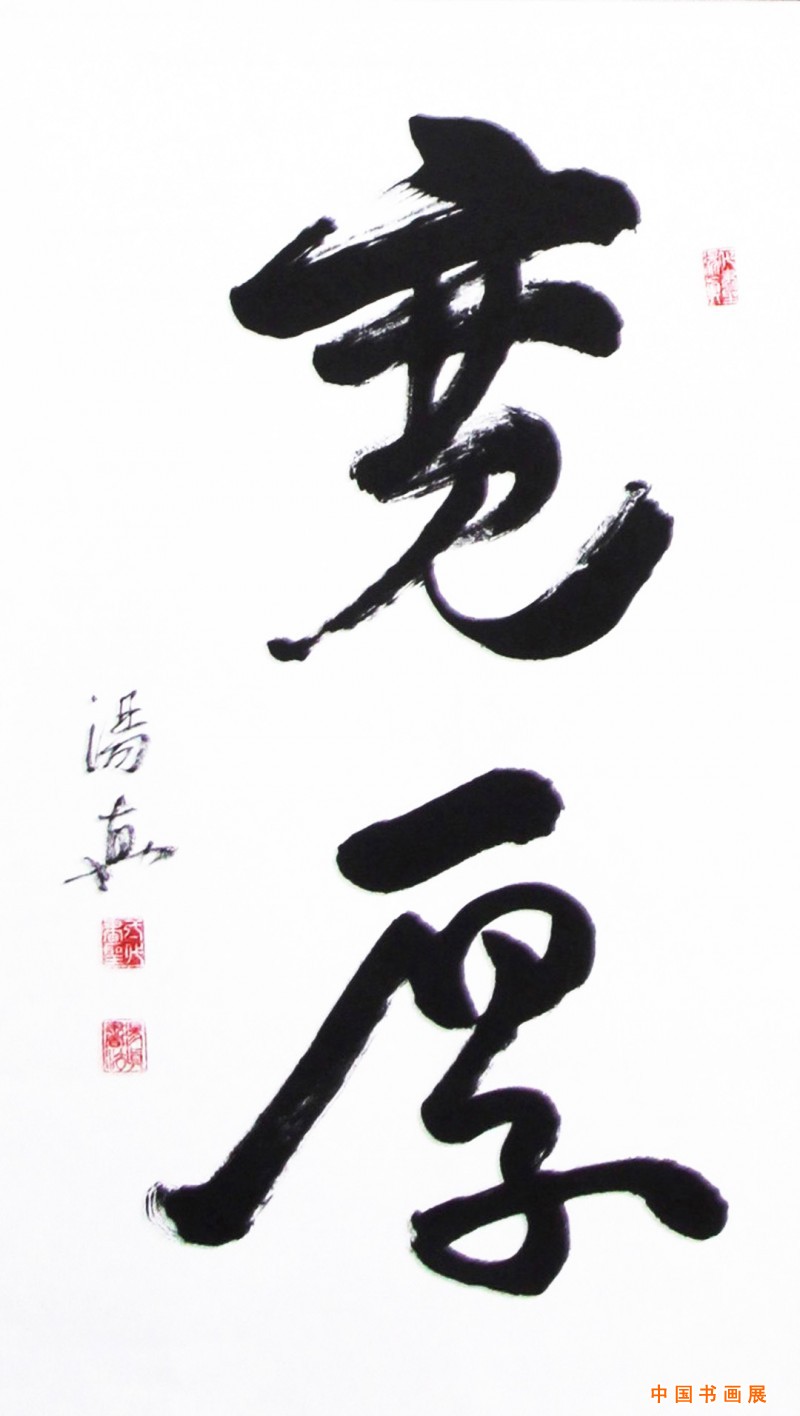 宽厚
湯真
中国书画展